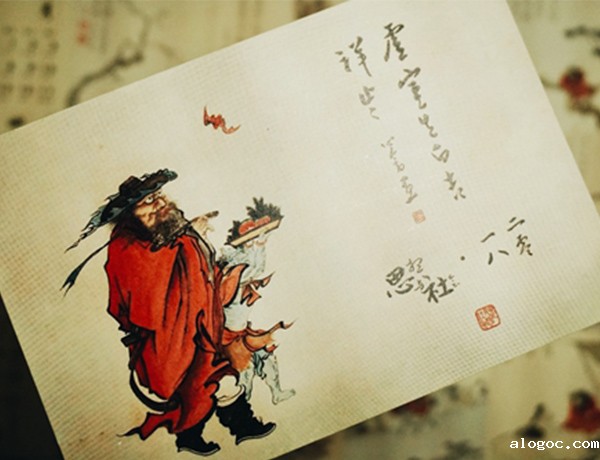 虛室生白吉
祥止止
二零
一八
思社
alogoc.com